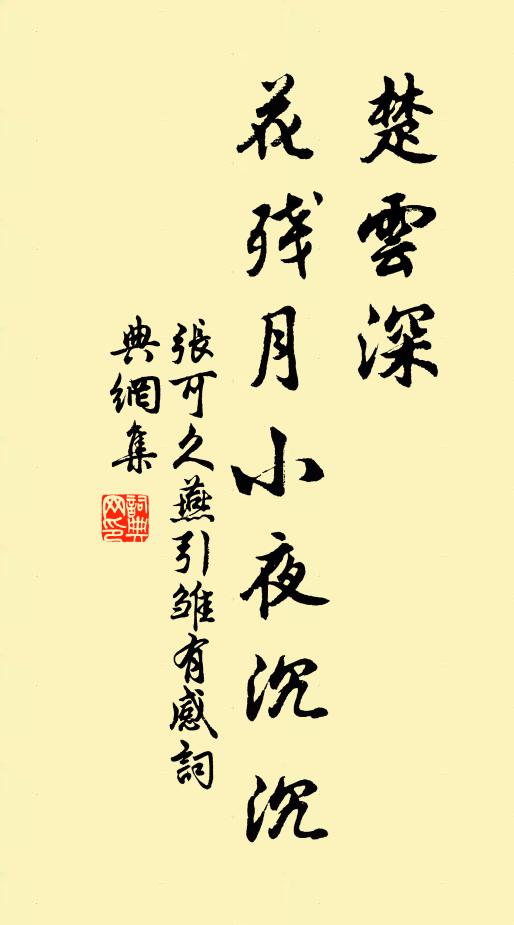 楚雲深
花残月小夜沉沉
張可久燕引雏有感詞
典網集
詞典網印